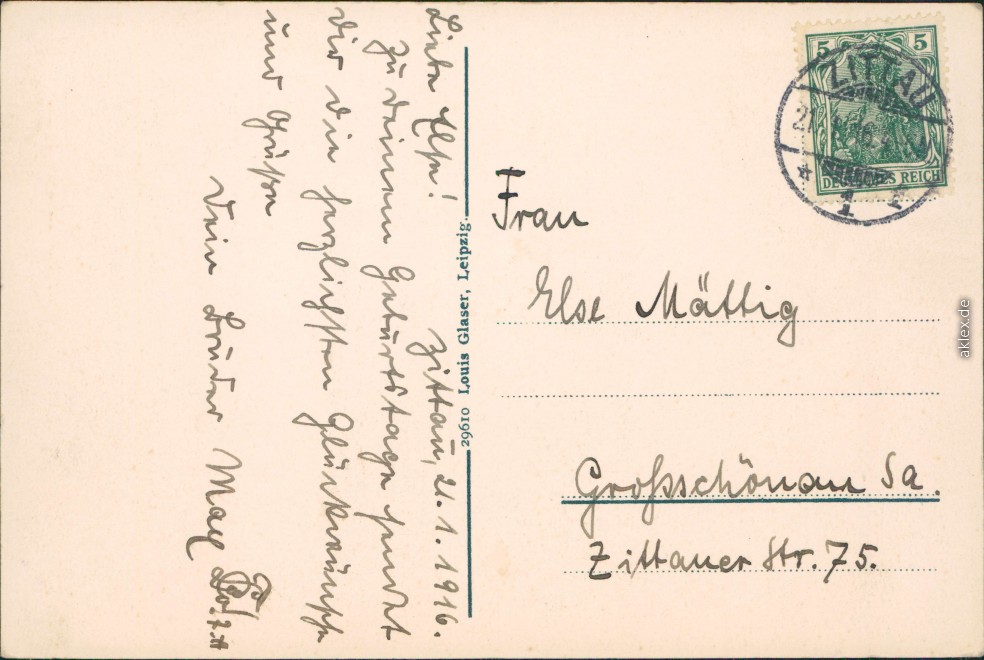 Zittau, 21.1.1916.
Liebe Else!
Zu deinem Geburtstage sendet
dir die herzlichsten Glückwünsche
und Grüße
dein Bruder Max
29610 Louis Glaser, Leipzig.
5 5
DEUTSCHES REICH
ZITTAU
* 1
Frau
Else Mättig
Großschönau Sa.
Zittauer Str. 75.
aklex.de